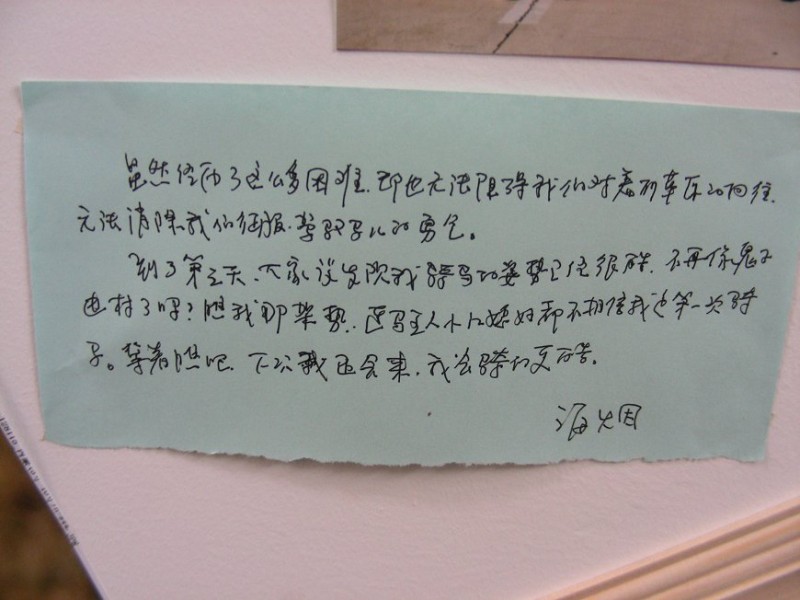 虽然经历了这么多困难，却也无法阻碍我们对着的草原的向往，
无法消除我们征服、驾驭马儿的勇气。
到了第三天，大家说发现我骑马的姿势已经很酷，不再像鬼子
进村了吗？瞧我那架势，连马主人小儿媳妇都不相信我这第一次骑
马。等着瞧吧，下次我还会来，我会骑的更酷。
海烟